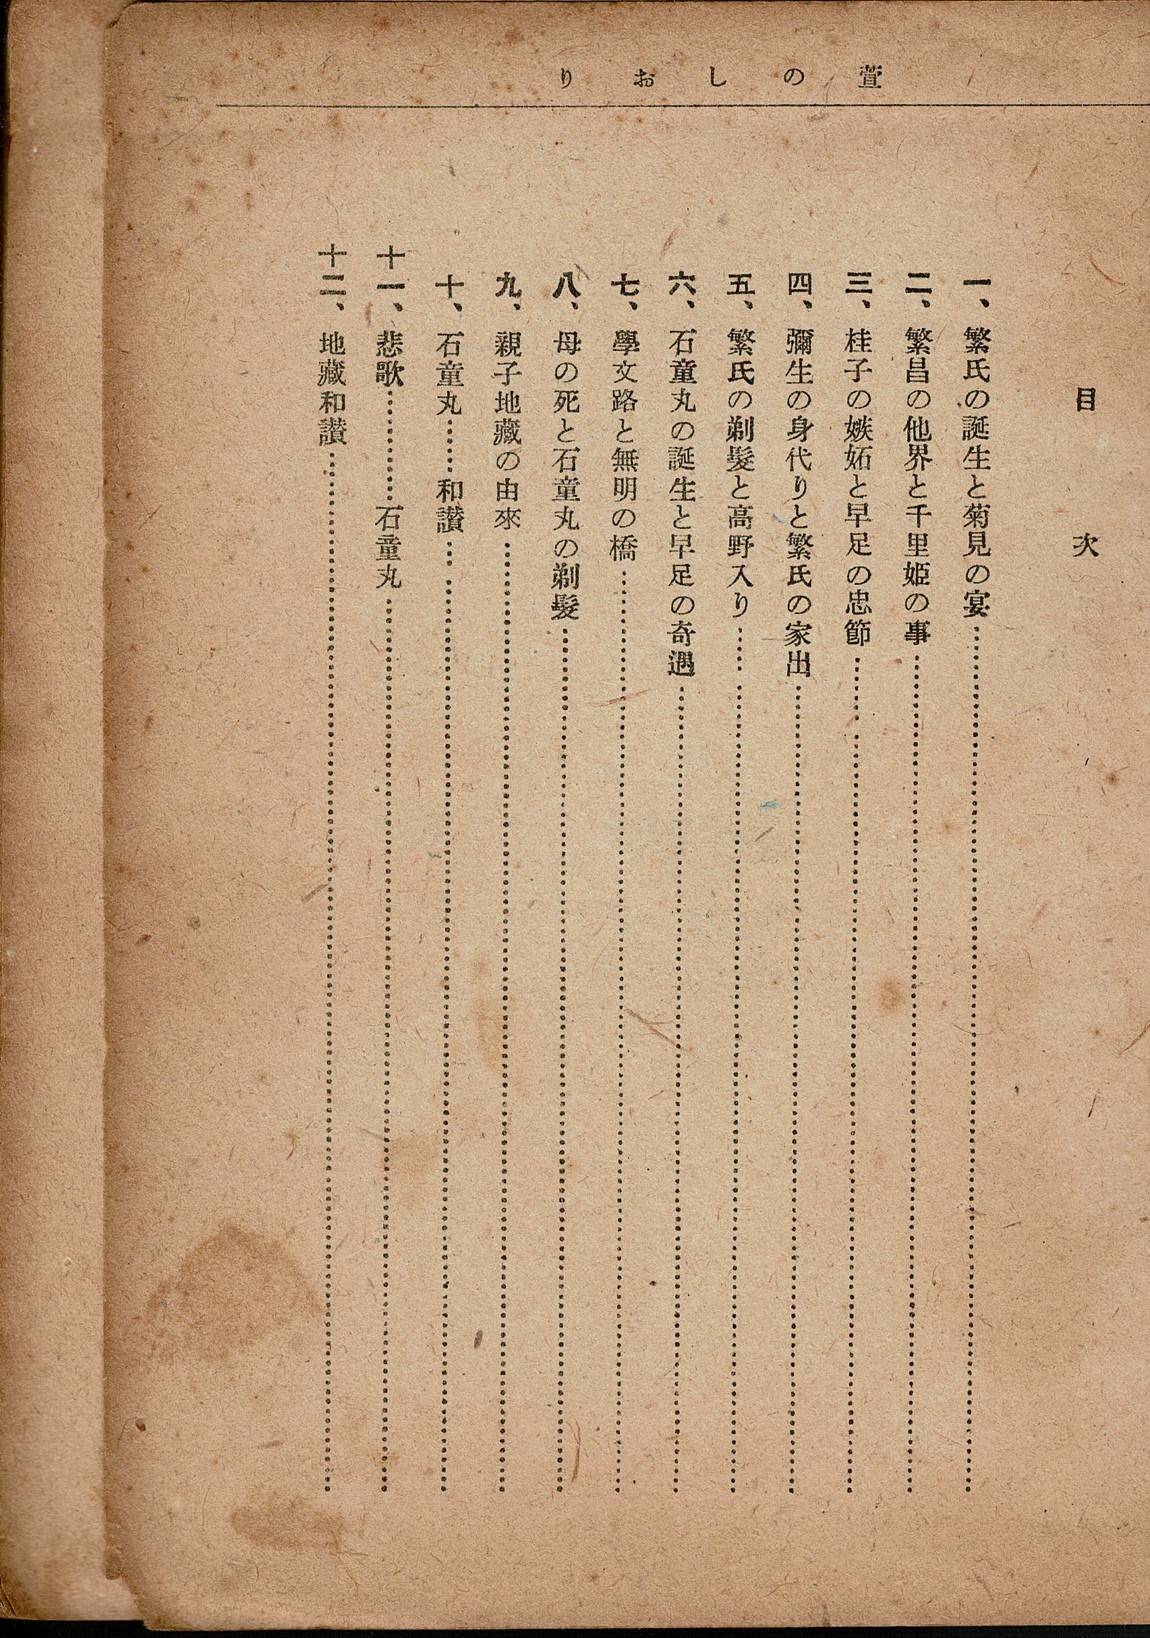 萱のしおり
目次
一、繁氏の誕生と菊見の宴……
二、繁昌の他界と千里姫の事……
三、桂子の嫉妬と早足の忠節……
四、彌生の身代りと繁氏の家出……
五、繁氏の剃髮と高野入り……
六、石童丸の誕生と早足の奇遇……
七、學文路と無明の橋……
八、母の死と石童丸の剃髮……
九、親子地藏の由來……
十、石童丸……和讃……
十一、悲歌……石童丸……
十二、地藏和讃……